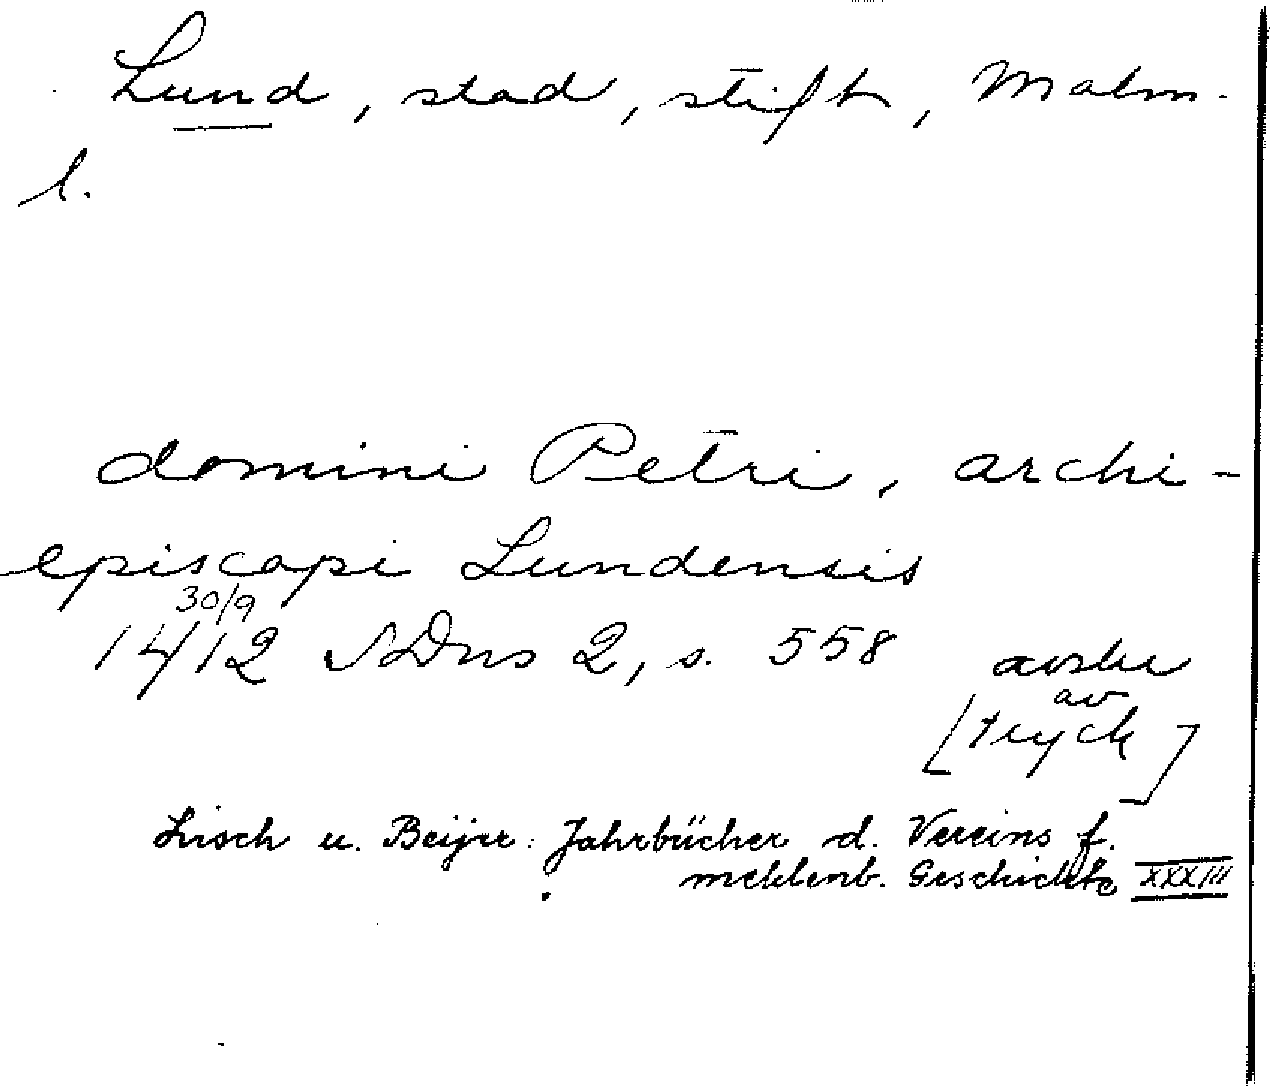 Lund, stad, stift, Malm.
l.
domini Petri, archi-
episcopi Lundensis
30/9
1412 SDns 2, s. 558
avskr
av
[tryck]
Lisch u. Beijer: Jahrbücher d. Vereins f.
meklenb. Geschichte XXXIII